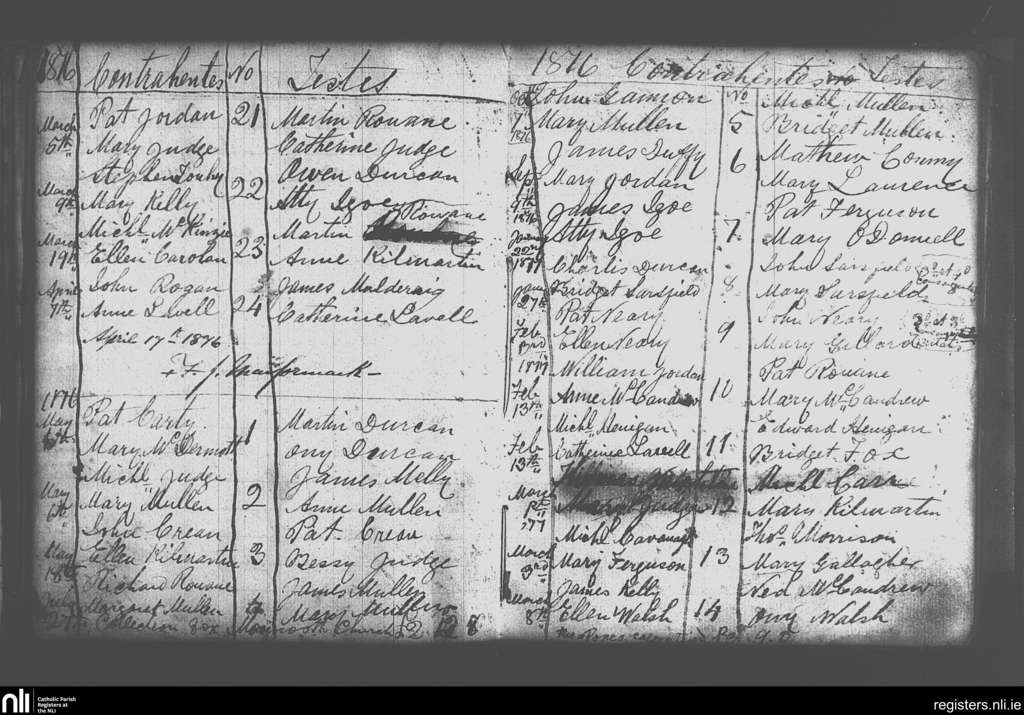 1876 Contrahentes No Testes
March Pat Jordan 21 Martin Rouane
6th Mary Judge Catherine Judge
Stephen Touhy 22 Owen Durcan
March 9th Mary Kelly Atty Igoe
Michl McKinzie 23 Martin Rouane
March 19th Ellen Carolan Anne Kilmartin
April John Rogan 24 James Mulderrig
9th Anne Lavell Catherine Lavell
April 17th 1876
F. J. MacCormack
1876
May Pat Carty 1 Martin Durcan
Mary McDermott ony Durcan
Michl Judge 2 James Melly
May 6th Mary Mullen Anne Mullen
John Crean 3 Pat Crean
May 18th Ellen Kilmartin Bessy Judge
Richard Rouane James Mullen
Margaret Mullen Mary Mullin
Collection for Maynooth Church £2.12.8
1876 Contrahentes No Testes
John Gannon 5 Michl Mullen
7th 1876 Mary Mullen Bridget Mullen
James Duffy 6 Mathew Conmy
Sep Mary Jordan Mary Laurence
9th 1876 James Igoe 7 Pat Ferguson
22nd 1877 Atty Igoe Mary O'Donnell
Charlis Durcan 8 John Sarsfield
27th Bridget Sarsfield Mary Sarsfield
Pat Neary 9 John Neary
Feb 3rd 1877 Ellen Neary Mary Gillard
William Jordan 10 Pat Rouane
Feb 13th Anne McCandrew Mary McCandrew
Michl Henigan 11 Edward Henigan
Feb 13th Catherine Lavell Bridget Fox
12 Michl Carr
March 1st 77 Mary Judge Mary Kilmartin
Michl Cavanagh 13 Thos Morrison
March 3rd Mary Ferguson Mary Gallagher
James Kelly 14 Ned McCandrew
March 8th Ellen Walsh Ony Walsh
nli
Catholic Parish
Registers at
the NLI
registers.nli.ie